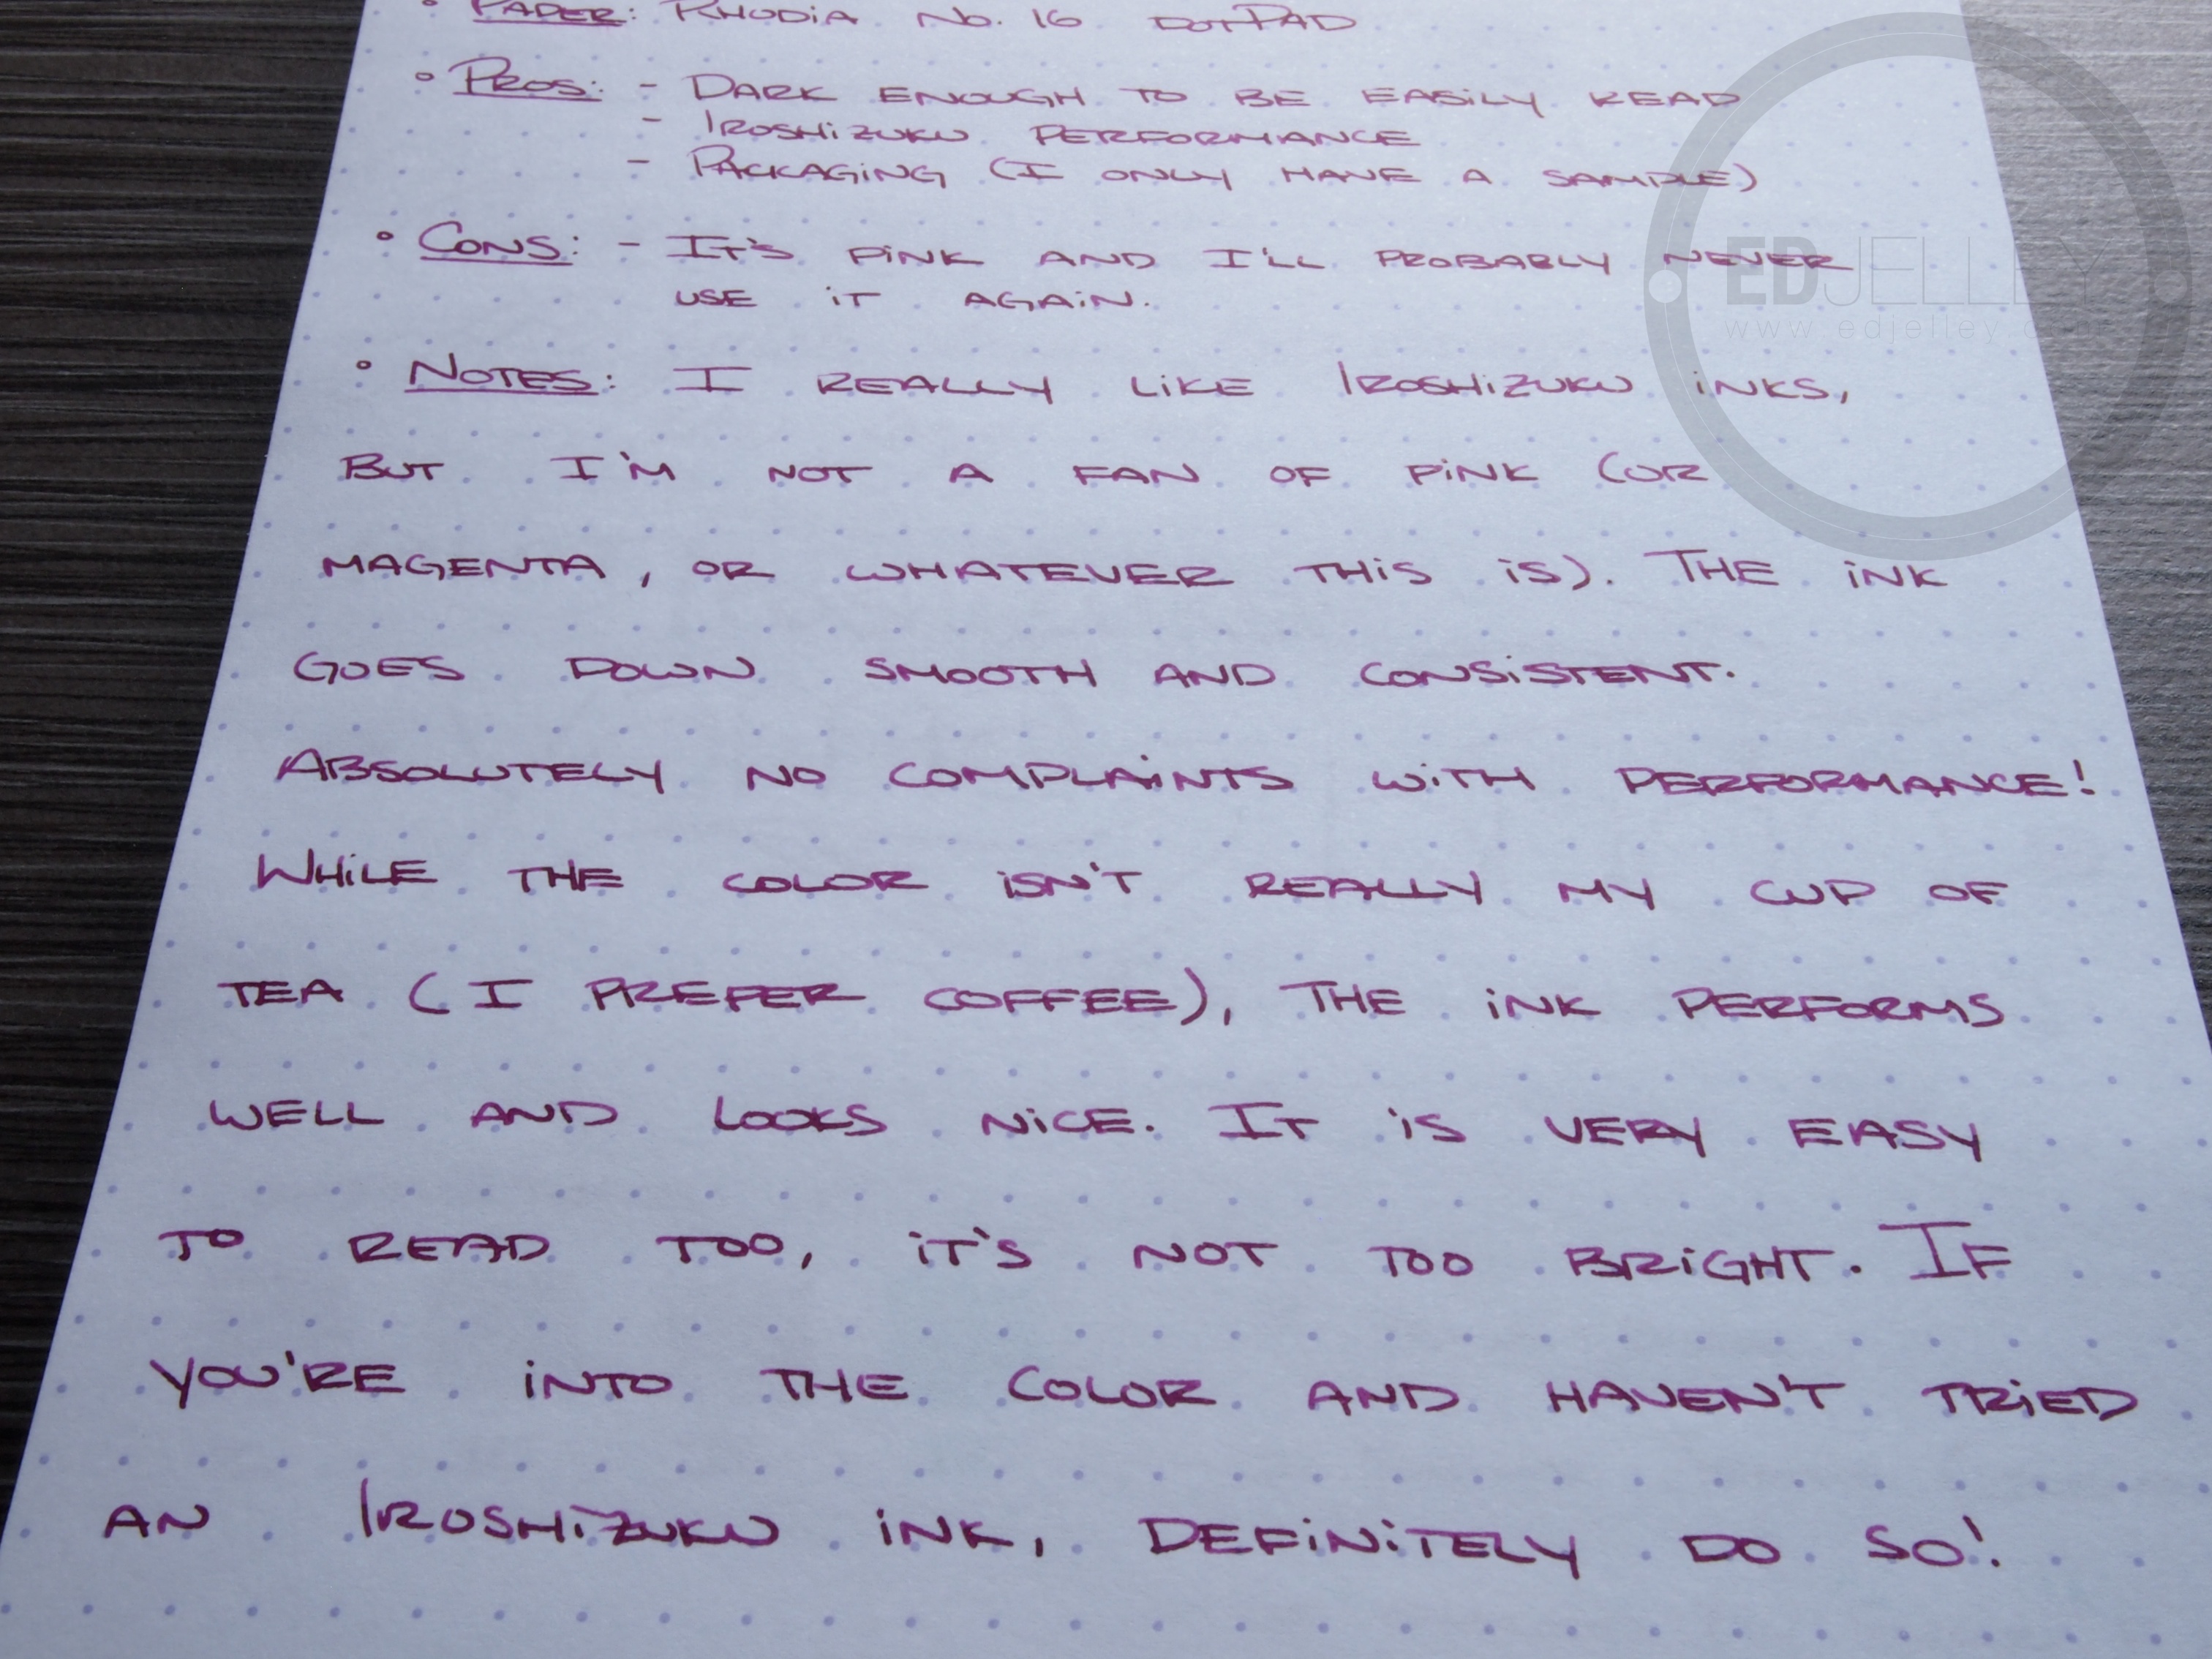 • PAPER: RHODIA No. 16 DOTPAD
• PROS: - DARK ENOUGH TO BE EASILY READ
- IROSHIZUKU PERFORMANCE
- PACKAGING (I ONLY HAVE A SAMPLE)
• CONS: - IT'S PINK AND I'LL PROBABLY NEVER
USE IT AGAIN.
EDJELLEY
www.edjelley.com
• NOTES: I REALLY LIKE IROSHIZUKU INKS,
BUT I'M NOT A FAN OF PINK (OR
MAGENTA, OR WHATEVER THIS IS). THE INK
GOES DOWN SMOOTH AND CONSISTENT.
ABSOLUTELY NO COMPLAINTS WITH PERFORMANCE!
WHILE THE COLOR ISN'T REALLY MY CUP OF
TEA (I PREFER COFFEE), THE INK PERFORMS
WELL AND LOOKS NICE. IT IS VERY EASY
TO READ TOO, IT'S NOT TOO BRIGHT. IF
YOU'RE INTO THE COLOR AND HAVEN'T TRIED
AN IROSHIZUKU INK, DEFINITELY DO SO!